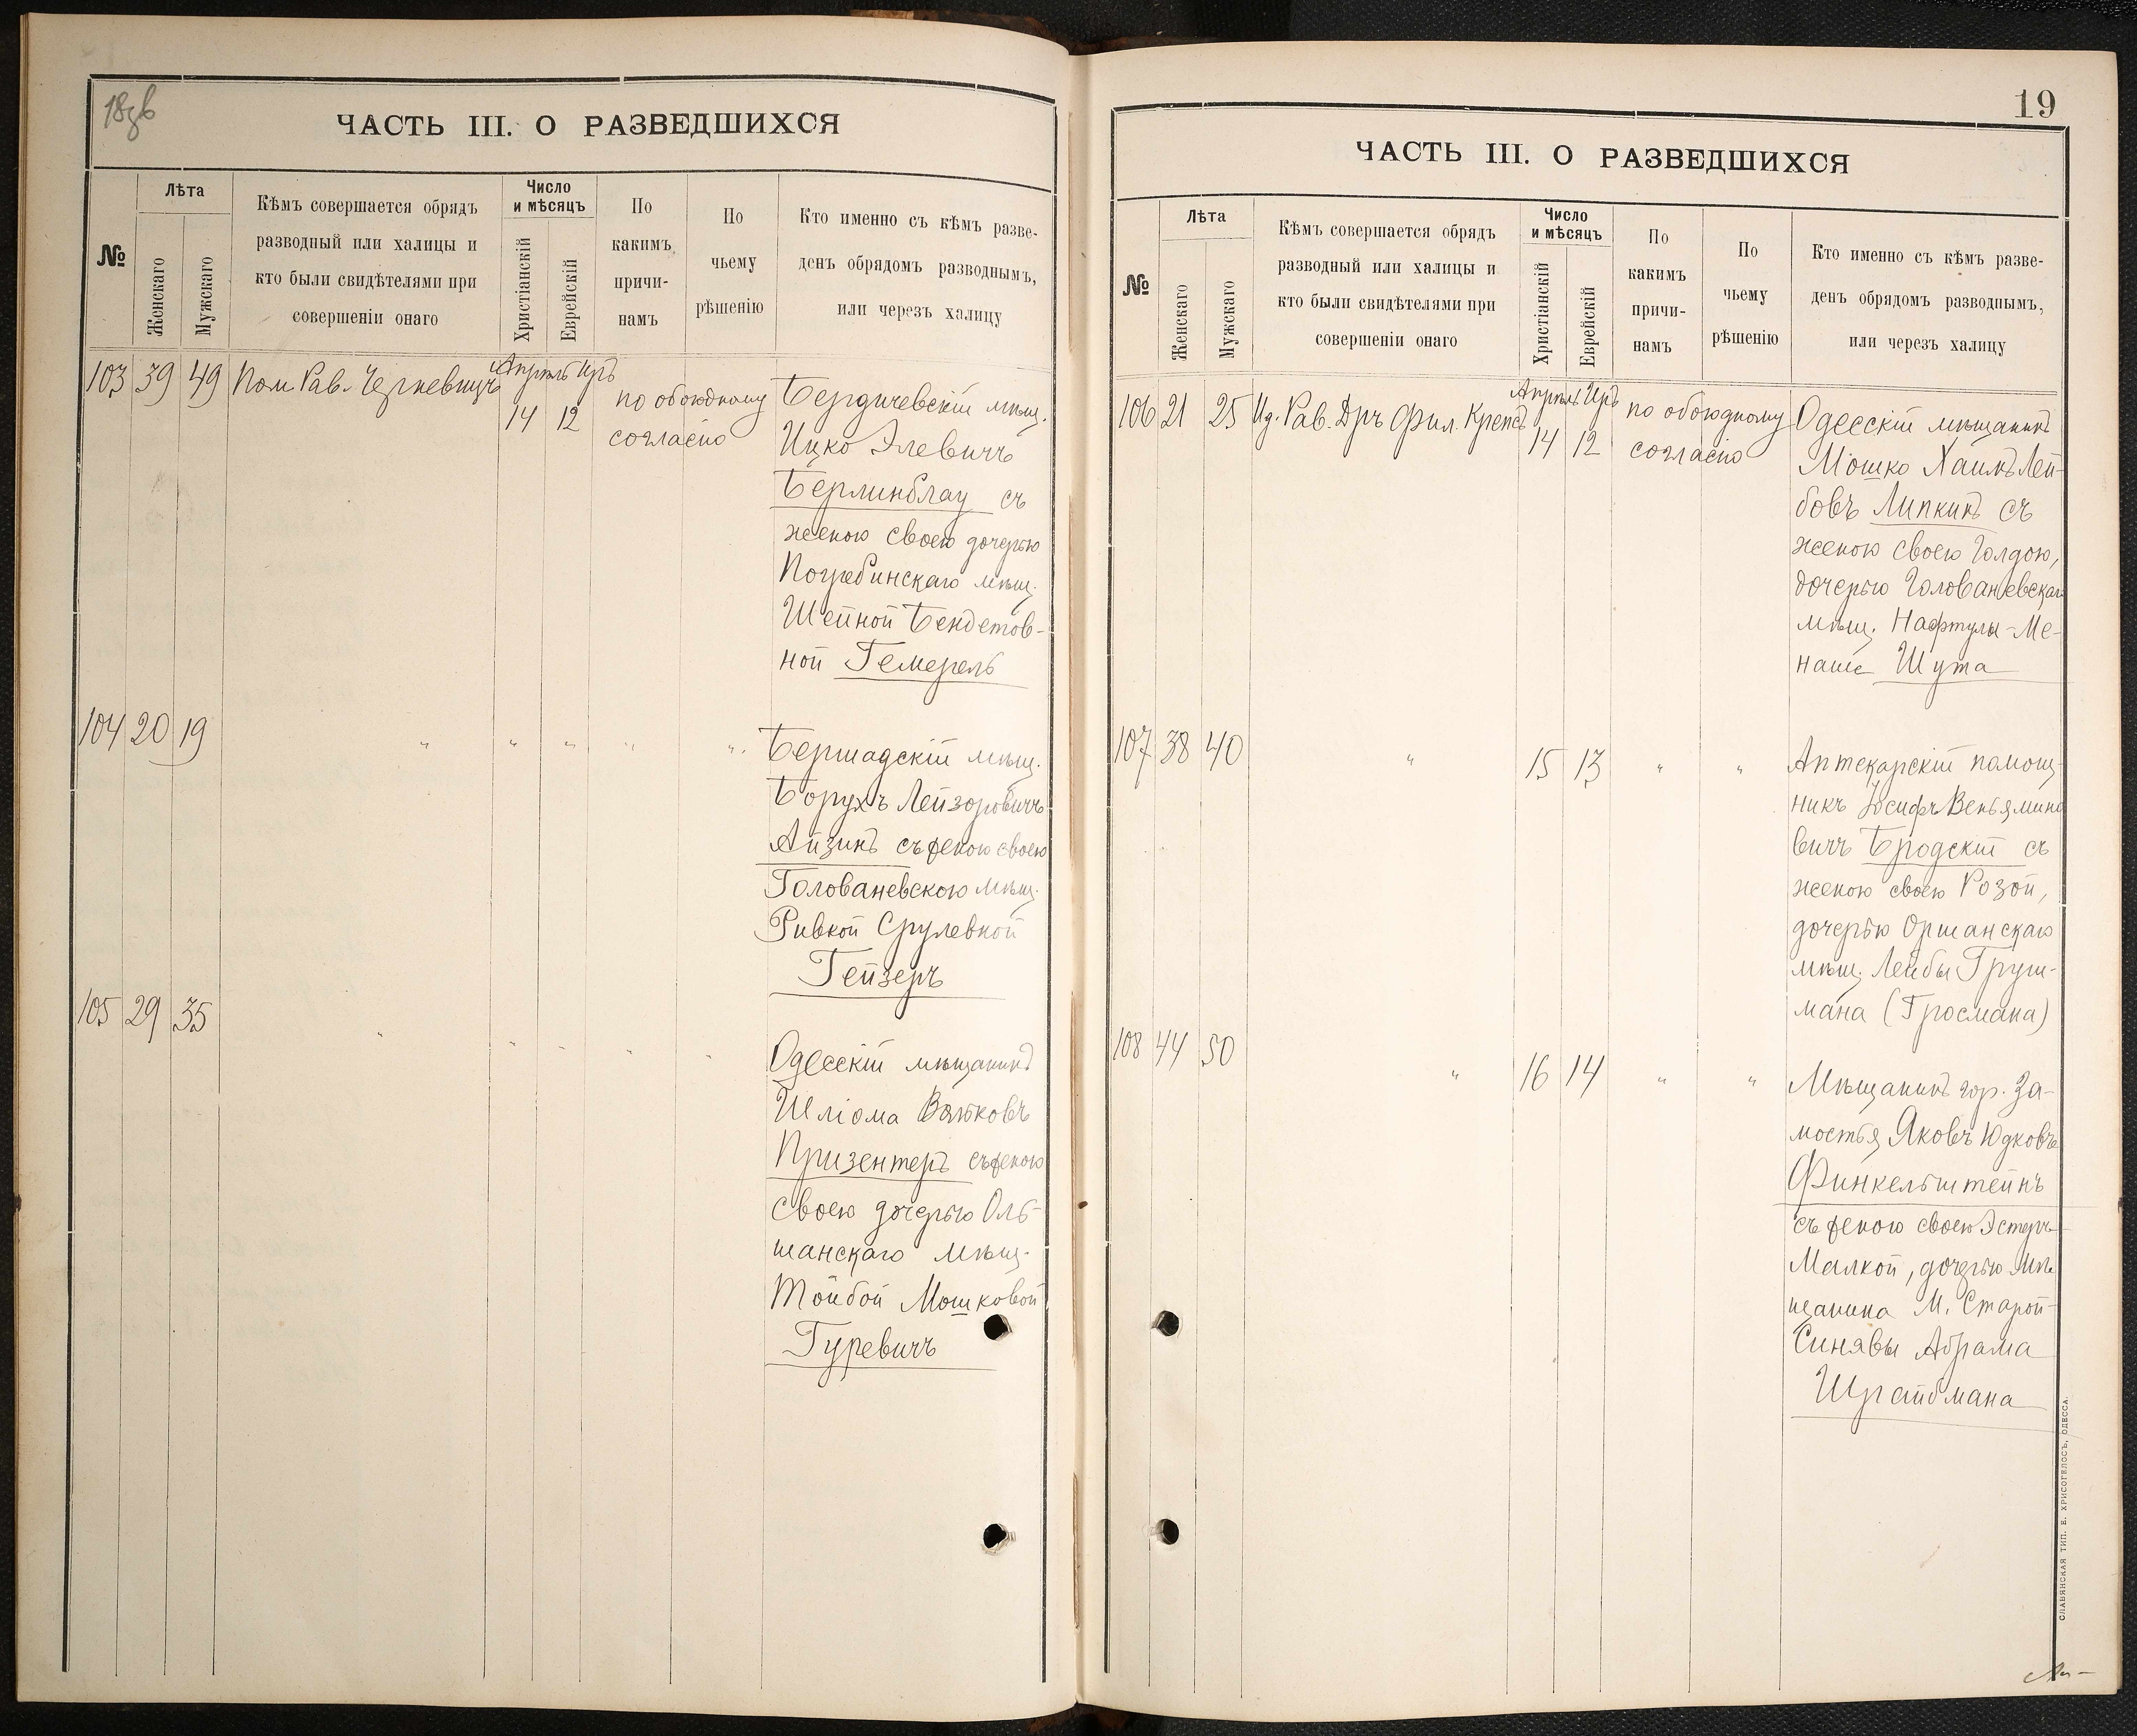 18зв
ЧАСТЬ III. О РАЗВЕДШИХСЯ
№
Лѣта
Женскаго
Мужскаго
Кѣмъ совершается обрядъ
разводный или халицы и
кто были свидѣтелями при
совершеніи онаго
Число
и мѣсяцъ
Христіанскій
Еврейскій
По
какимъ
причи-
намъ
По
чьему
рѣшенію
Кто именно съ кѣмъ разве-
денъ обрядомъ разводнымъ,
или черезъ халицу
103 39 49 Пом. Рав. Черкевичъ
Апрѣль Иръ
14 12
по обоюдному
согласію
Бердичевскій мѣщ.
Ицко Элевичъ
Берлинблау съ
женою своею дочерью
Погребинскаго мѣщ.
Шейной Бендетов-
ной Гемерель
104 20 19 " " " " "
Бершадскій мѣщ.
Борухъ Лейзоровичъ
Айзинъ съ женою своею
Голованевскою мѣщ.
Ривкой Срулевной
Гейзеръ
105 29 35 " " " " "
Одесскій мѣщанинъ
Шліома
Призентеръ съ женою
своею дочерью Оль-
шанскаго мѣщ.
Тойбой Мошковой
Гуревичъ
19
ЧАСТЬ III. О РАЗВЕДШИХСЯ
№
Лѣта
Женскаго
Мужскаго
Кѣмъ совершается обрядъ
разводный или халицы и
кто были свидѣтелями при
совершеніи онаго
Число
и мѣсяцъ
Христіанскій
Еврейскій
По
какимъ
причи-
намъ
По
чьему
рѣшенію
Кто именно съ кѣмъ разве-
денъ обрядомъ разводнымъ,
или черезъ халицу
106 21 25 Ид. Рав. Дръ Фил. Крепсъ
Апрѣль Иръ
14 12
по обоюдному
согласію
Одесскій мѣщанинъ
Мошко Хаимъ Лей-
бовъ Липкинъ съ
женою своею Голдою,
дочерью Голованевскаго
мѣщ. Нафтулы-Ме-
наше Шута
107 38 40 " 15 13 " "
Аптекарскій помощ-
никъ Іосифъ Веньямино
вичъ Бродскій съ
женою своею Розой,
дочерью Оршанскаго
мѣщ. Лейбы Груш-
мана (Гросмана)
108 44 50 " 16 14 " "
Мѣщанинъ гор. За-
мостья Яковъ Юдковъ
Финкельштейнъ
съ женою своею Эстеръ-
Малкой, дочерью мѣ-
щанина М. Старой-
Синявы Абрама
Шрайбмана
СЛАВЯНСКАЯ ТИП. Е. ХРИСОГЕЛОСЪ, ОДЕССА.